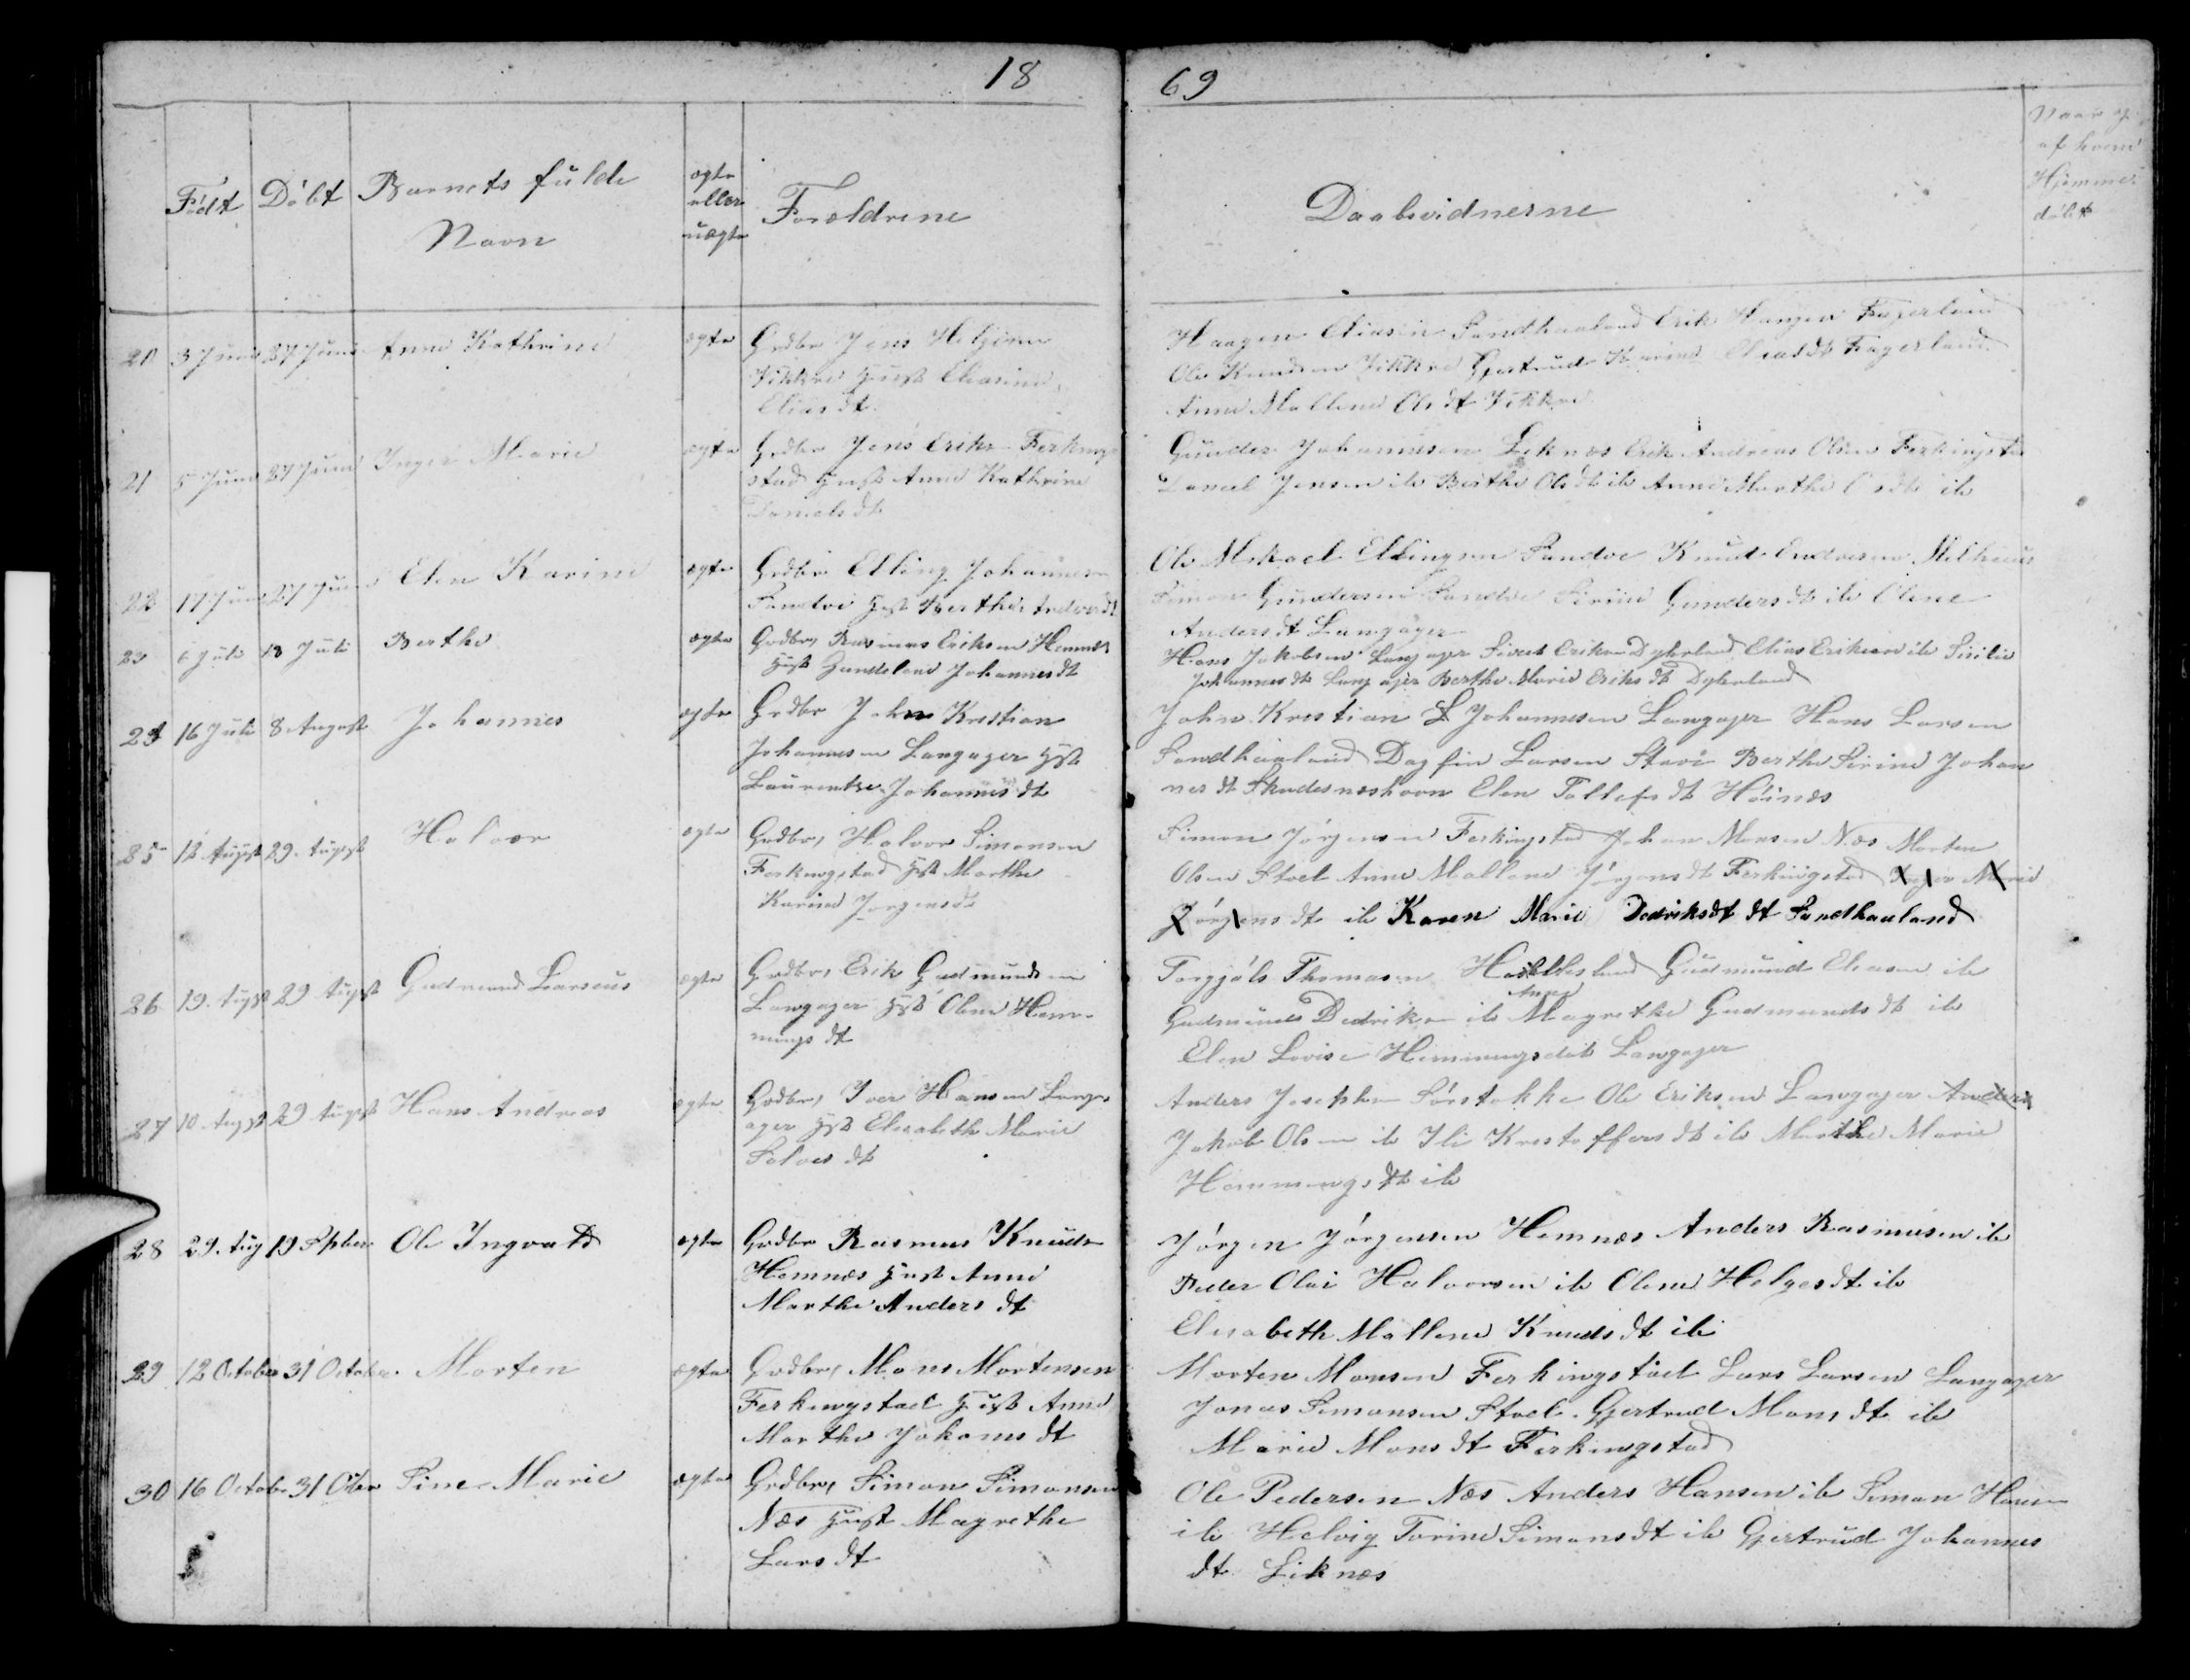 18 69
Født Döbt Barnets fulde Navn ægte eller uægte Forældrene
Daabsvidnerne
Naar og af hvem Hjemmedöbt
20 3 Juni 27 Juni Anne Kathrine ægte Grdbr Jens Helgesen
Vikkre Hust Eliasine
Eliasdt
Haagen Eliasen Sandhaaland Erik Haagen Fagerland
Ole Knudsen Vikkre Gjertrud Karine Eliasdt Fagerland
Anne Mallene Olsdt Vikkre
21 5 Juni 27 Juni Inger Marie ægte Grdbr Jens Eriks Ferking
stad Hust Anne Kathrine
Danielsdt
Gunder Johannesen Liknæs Erik Andreas Olsen Ferkingstad
Daniel Jensen ib Berthe Olsdt ib Anne Marthe Olsdt ib
22 17 Juni 27 Juni Elen Karine ægte Grdbr Elling Johannesen
Sandve Hust Berthe
Ole Mikael Ellingsen Sandve Knud Endresen
Simon Gundersen Sandve Serine Gundersdt ib Olene
Andersdt Langager
23 6 Juli 18 Juli Berthe ægte Grdbr, Rasmus Eriksen Hemnes
Hust Gundeline Johannesdt
Hans Jakobsen Langager Sivert Eriksen Dybeland Elias Eriksen ib Sisilie
Johannesdt Langager Berthe Marie Eriksdt Dybeland
24 16 Juli 8 August Johannes ægte Grdbr John Kristian
Johannesen Langager Hst
Laurentse Johannesdt
John Kristian L Johannesen Langager Hans Larsen
Sandhaaland Dagfin Larsen Stavø Berthe Serine Johan
nesdt Skudesneshavn Elen Tollefsdt Höinæs
25 12 August 29. August Halvor ægte Grdbr, Halvor Simonsen
Ferkingstad Hst Marthe
Karine Jörgensdt
Simon Jörgensen Ferkingstad Johan Monsen Næs Morten
Olsen Stoel Anne Mallene Jörgensdt Ferkingstad Inger Marie
Jörgensdt ib Karen Marie Dedriksdt dt Sandhaaland
26 19. August 29 August Gudmund Lareus ægte Grdbr, Erik Gudmundsen
Langager Hst Olene Hem-
mingsdt
Torgjöls Thomasen Gudmund Eliasen ib
Gudmund Dedriks ib Anne Magrethe Gudmundsdt ib
Elen Lovise Hemmingsdat Langager
27 10 August 29 August Hans Andreas ægte Grdbr, Iver Hansen Lang
ager Hst Elisabeth Marie
Salvesdt
Anders Josephsen Sörstokke Ole Eriksen Langager Anders
Jakob Olsen ib Ili Kristoffersdt ib Marthe Marie
Hemmingsdt ib
28 29. Aug 19 Spbr Ole Ingvald ægte Grdbr Rasmus Knuds
Hemnæs Hust Anne
Marthe Andersdt
Jörgen Jörgensen Hemnæs Anders Rasmusen ib
Peder Olai Halvorsen ib Olene Helgesdt ib
Elisabeth Mallene Knudsdt ib
29 12 October 31 October Morten ægte Grdbr, Mons Mortensen
Ferkingstad Hust Anne
Marthe Johannesdt
Morten Monsen Ferkingstad Lars Larsen Langager
Jonas Simonsen Stoel Gjertrud Monsdt ib
Marie Monsdt Ferkingstad
30 16 October 31 Ober Sine Marie ægte Grdbr, Simon Simonsen
Næs Hust Magrethe
Larsdt
Ole Pedersen Næs Anders Hansen ib Simon Hansen
ib Helvig Torine Simonsdt ib Gjertrud Johannes
dt Liknæs